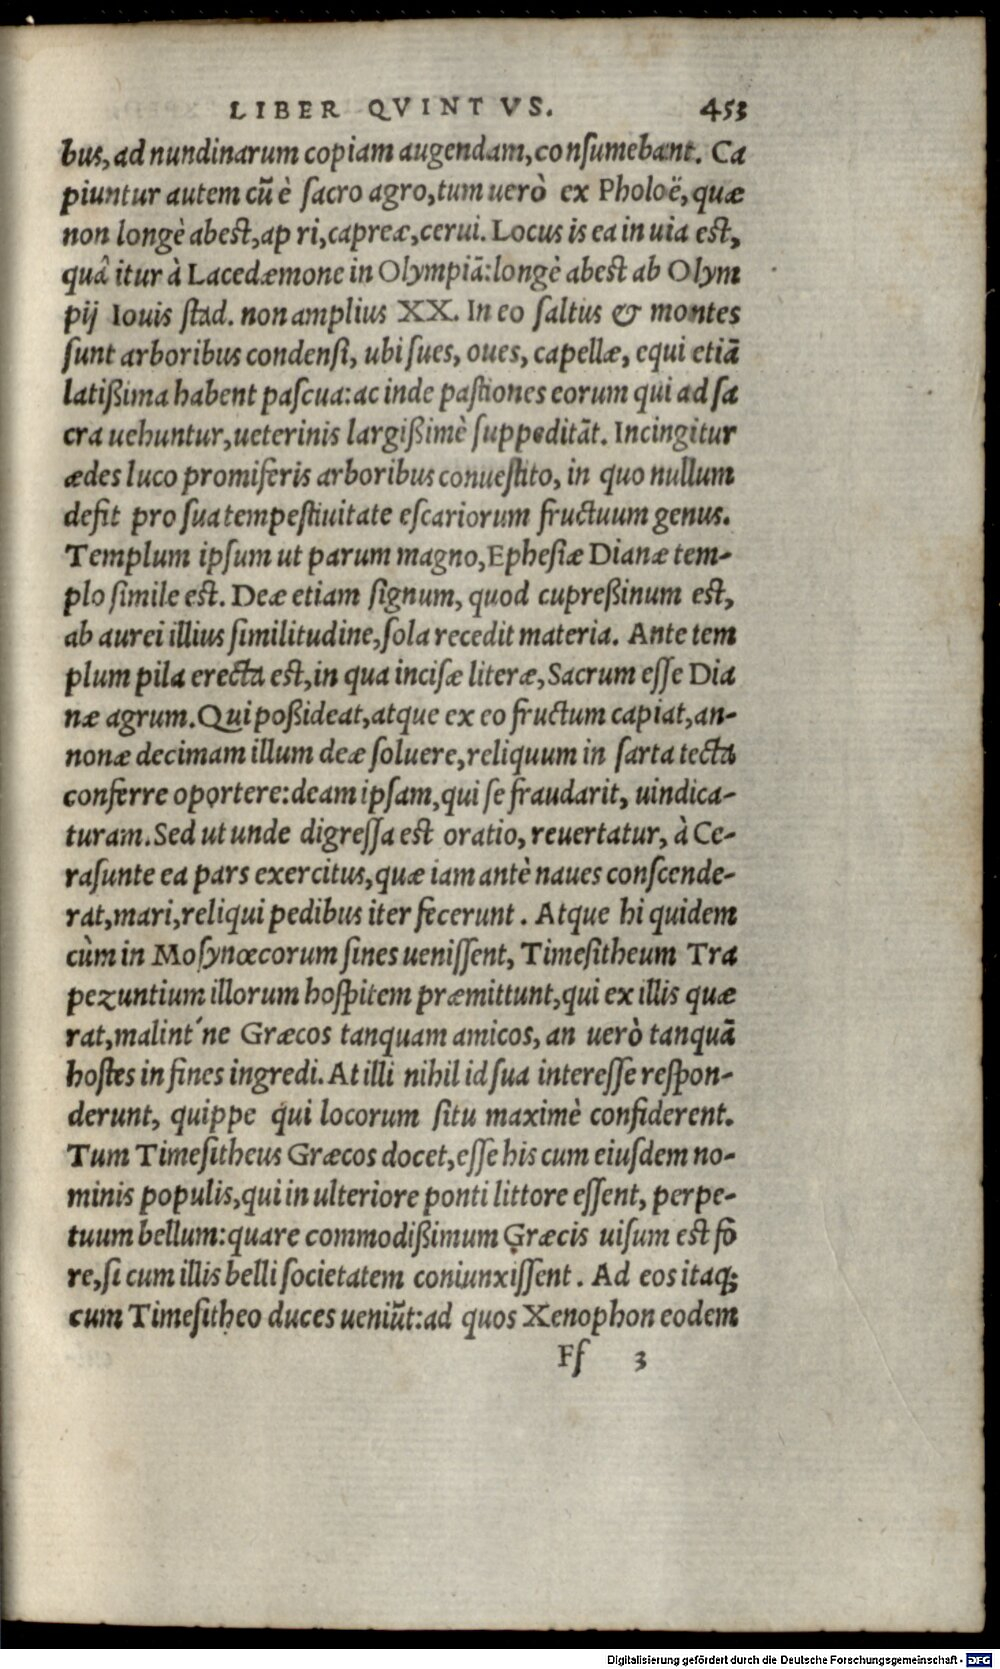 LIBER QVINTVS. 453
bus, ad nundinarum copiam augendam, consumebant. Ca
piuntur autem cũ è sacro agro, tum uerò ex Pholoë, quæ
non longè abest, apri, capreæ, cerui. Locus is ea in uia est,
quâ itur à Lacedæmone in Olympiã: longè abest ab Olym
pij Iouis stad. non amplius XX. In eo saltus & montes
sunt arboribus condensi, ubi sues, oues, capellæ, equi etiã
latißima habent pascua: ac inde pastiones eorum qui ad sa
cra uehuntur, ueterinis largißimè suppeditãt. Incingitur
ædes luco promiseris arboribus conuestito, in quo nullum
defit pro sua tempestiuitate escariorum fructuum genus.
Templum ipsum ut parum magno, Ephesiæ Dianæ tem-
plo simile est. Deæ etiam signum, quod cupreßinum est,
ab aurei illius similitudine, sola recedit materia. Ante tem
plum pila erecta est, in qua incisæ literæ, Sacrum esse Dia
næ agrum. Qui poßideat, atque ex eo fructum capiat, an-
nonæ decimam illum deæ soluere, reliquum in sarta tecta
conferre oportere: deam ipsam, qui se fraudarit, uindica-
turam. Sed ut unde digressa est oratio, reuertatur, à Ce-
rasunte ea pars exercitus, quæ iam antè naues conscende-
rat, mari, reliqui pedibus iter fecerunt. Atque hi quidem
cùm in Mosynœcorum fines uenissent, Timesitheum Tra
pezuntium illorum hospitem præmittunt, qui ex illis quæ
rat, malint'ne Græcos tanquam amicos, an uerò tanquã
hostes in fines ingredi. At illi nihil id sua interesse respon-
derunt, quippe qui locorum situ maximè confiderent.
Tum Timesitheus Græcos docet, esse his cum eiusdem no-
minis populis, qui in ulteriore ponti littore essent, perpe-
tuum bellum: quare commodißimum Græcis uisum est fo
re, si cum illis belli societatem coniunxissent. Ad eos itaq;
cum Timesitheo duces ueniũt: ad quos Xenophon eodem
Ff 3
Digitalisierung gefördert durch die Deutsche Forschungsgemeinschaft - DFG